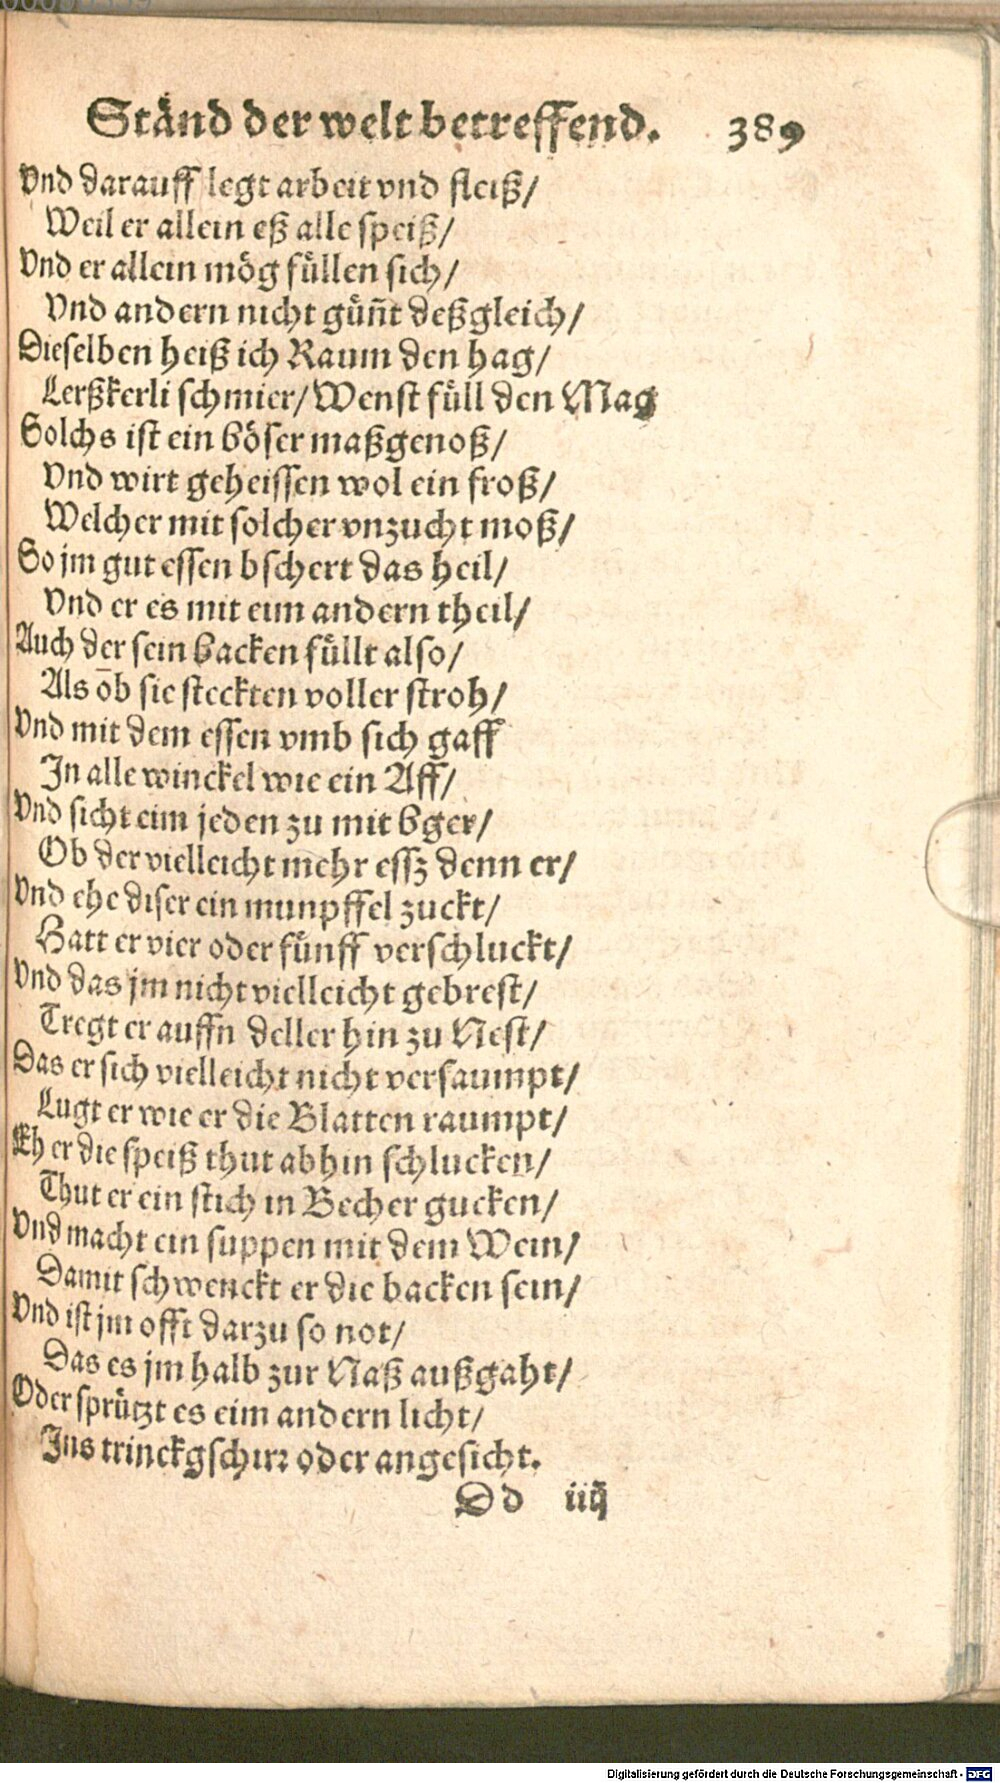 Ständ der welt betreffend. 389
Vnd darauff legt arbeit vnd fleiß/
Weil er allein eß alle speiß/
Vnd er allein mög füllen sich/
Vnd andern nicht güñt deßgleich/
Dieselben heiß ich Raum den hag/
Lerßkerli schmier/ Wenst füll den Mag
Solchs ist ein böser maßgenoß/
Vnd wirt geheissen wol ein froß/
Welcher mit solcher vnzucht moß/
So jm gut essen bschert das heil/
Vnd er es mit eim andern theil/
Auch der sein backen füllt also/
Als ob sie steckten voller stroh/
Vnd mit dem essen vmb sich gaff
In alle winckel wie ein Aff/
Vnd sicht eim jeden zu mit bger/
Ob der vielleicht mehr essz denn er/
Vnd ehe diser ein munpffel zuckt/
Hatt er vier oder fünff verschluckt/
Vnd das jm nicht vielleicht gebrest/
Tregt er auffn deller hin zu Nest/
Das er sich vielleicht nicht versaumpt/
Lugt er wie er die Blatten raumpt/
Eh er die speiß thut abhin schlucken/
Thut er ein stich in Becher gucken/
Vnd macht ein suppen mit dem Wein/
Damit schwenckt er die backen sein/
Vnd ist jm offt darzu so not/
Das es jm halb zur Naß außgaht/
Oder sprützt es eim andern licht/
Ins trinckgschirr oder angesicht.
Dd iiij
Digitalisierung gefördert durch die Deutsche Forschungsgemeinschaft - DFG